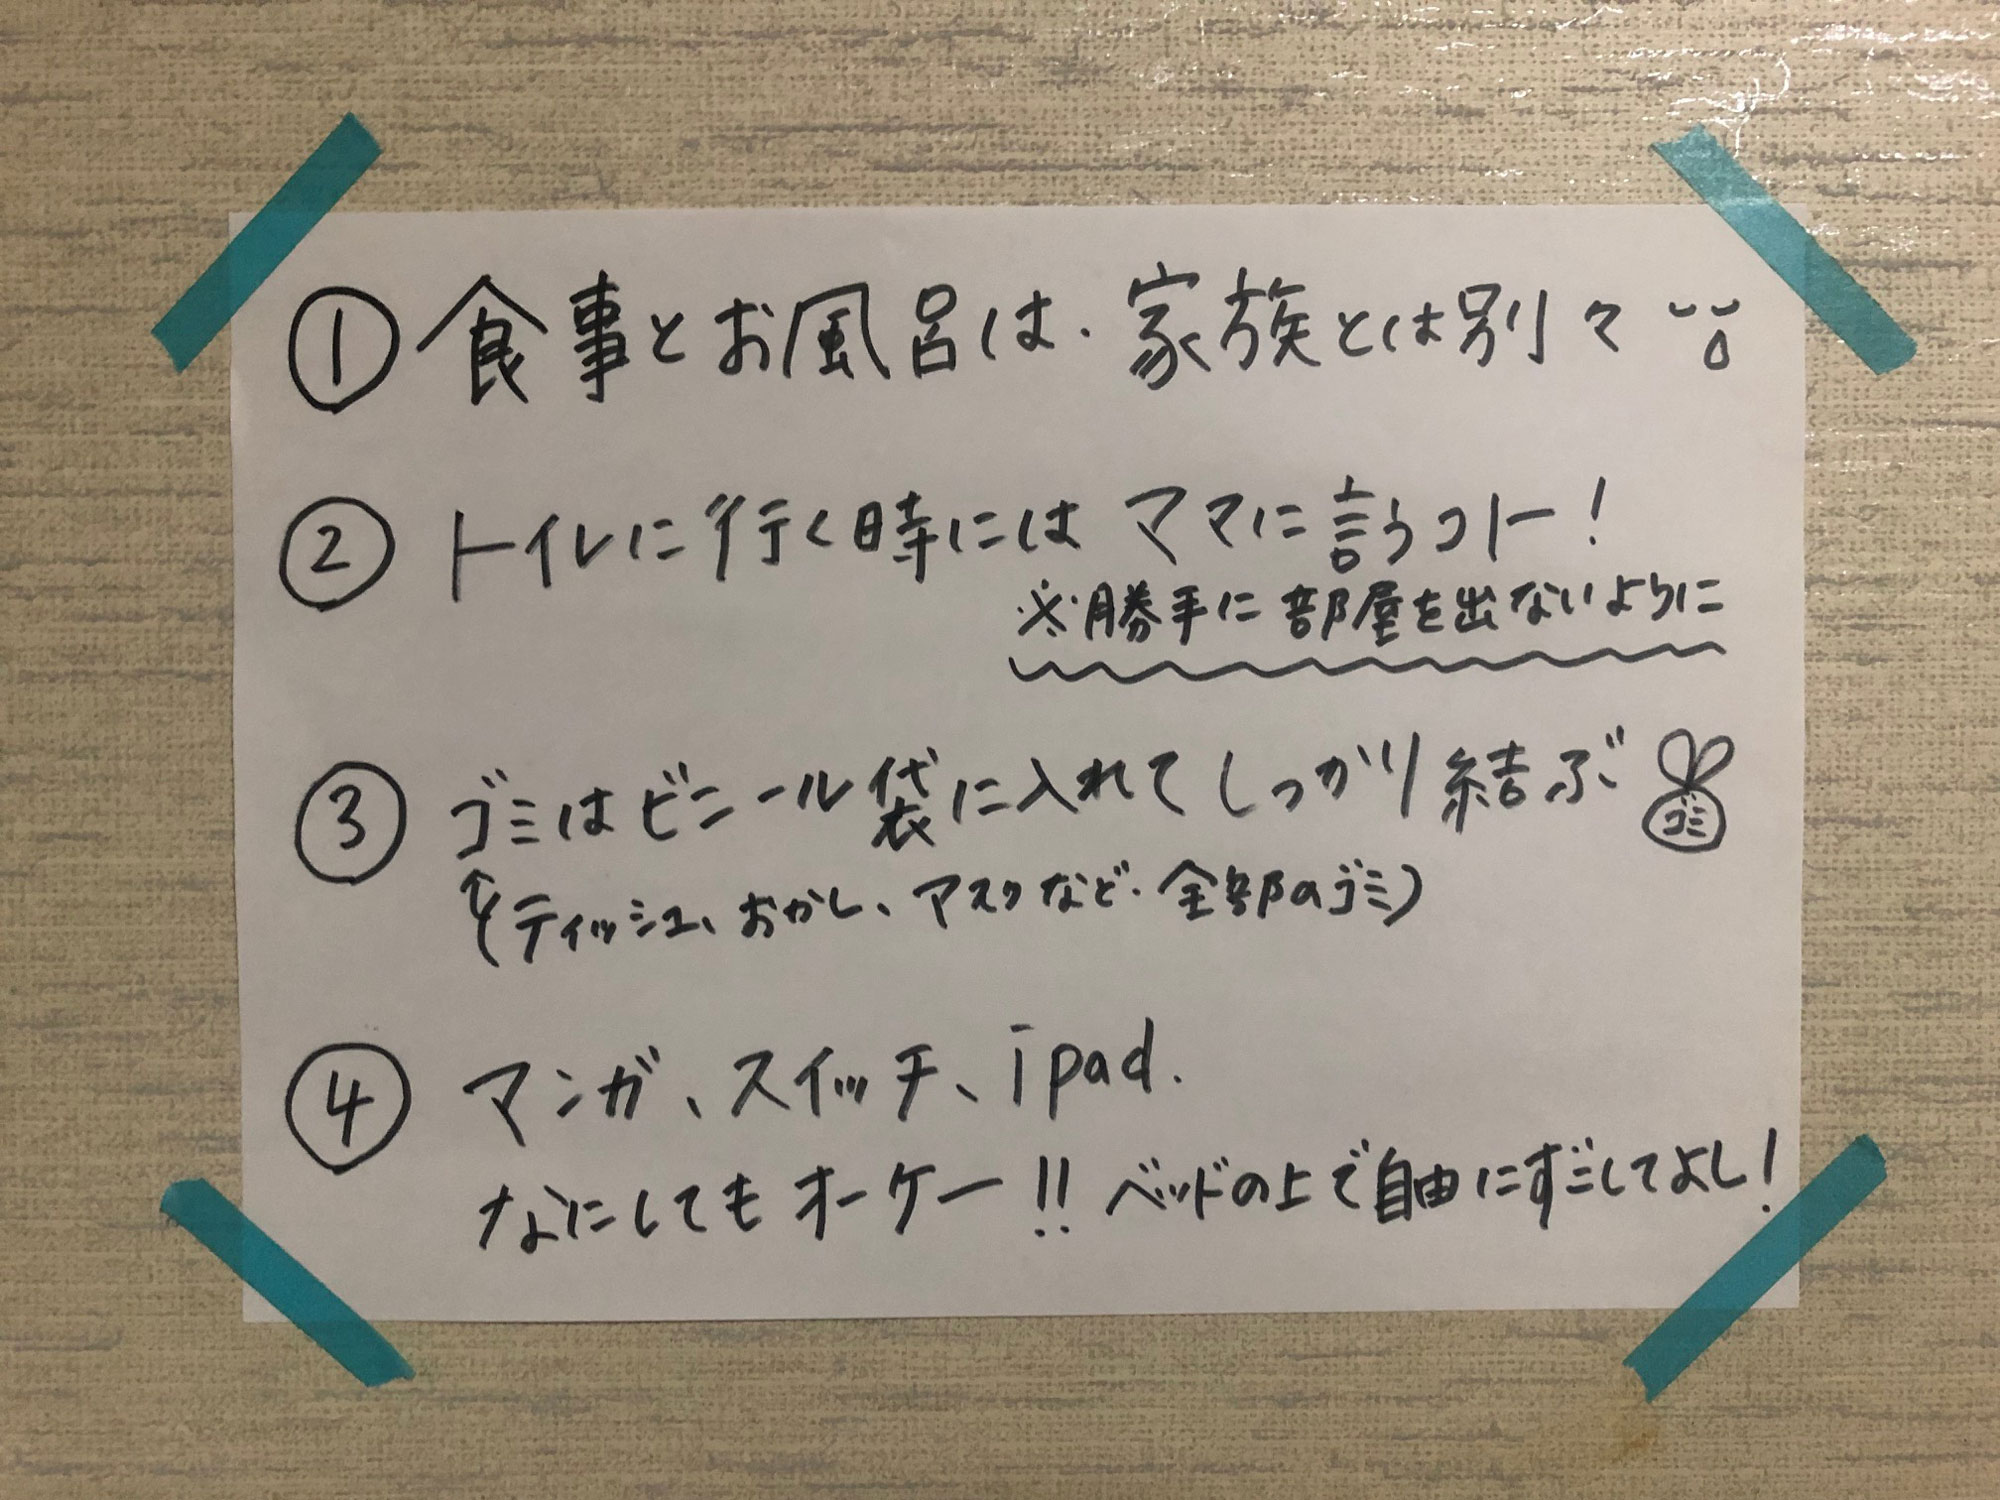 ① 食事とお風呂は、家族とは別々
② トイレに行く時には ママに言うコトー!
※勝手に部屋を出ないように
③ ゴミはビニール袋に入れてしっかり結ぶ ゴミ
↑(ティッシュ、おかし、マスクなど、全部のゴミ)
④ マンガ、スイッチ、ipad.
なにしてもオーケー!! ベッドの上で自由にすごしてよし!